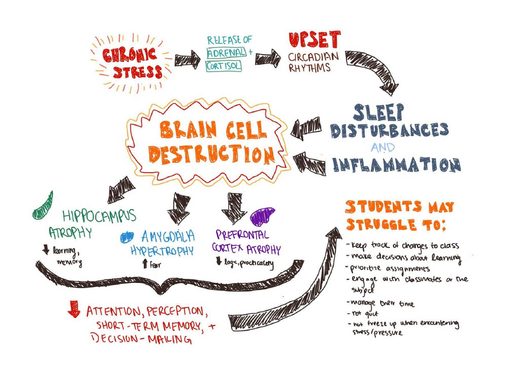 CHRONIC
STRESS
RELEASE OF
ADRENAL +
CORTISOL
UPSET
CIRCADIAN
RHYTHMS
SLEEP
DISTURBANCES
AND
INFLAMMATION
BRAIN CELL
DESTRUCTION
HIPPOCAMPUS
ATROPHY
learning,
memory
AMYGDALA
HYPERTROPHY
fear
PREFRONTAL
CORTEX ATROPHY
logic, practicality
ATTENTION, PERCEPTION,
SHORT-TERM MEMORY, +
DECISION-MAKING
STUDENTS MAY
STRUGGLE TO:
- keep track of changes to class
- make decisions about learning
- prioritize assignments
- engage with classmates or the
subject
- manage their time
- not quit
- not freeze up when encountering
stress/pressure